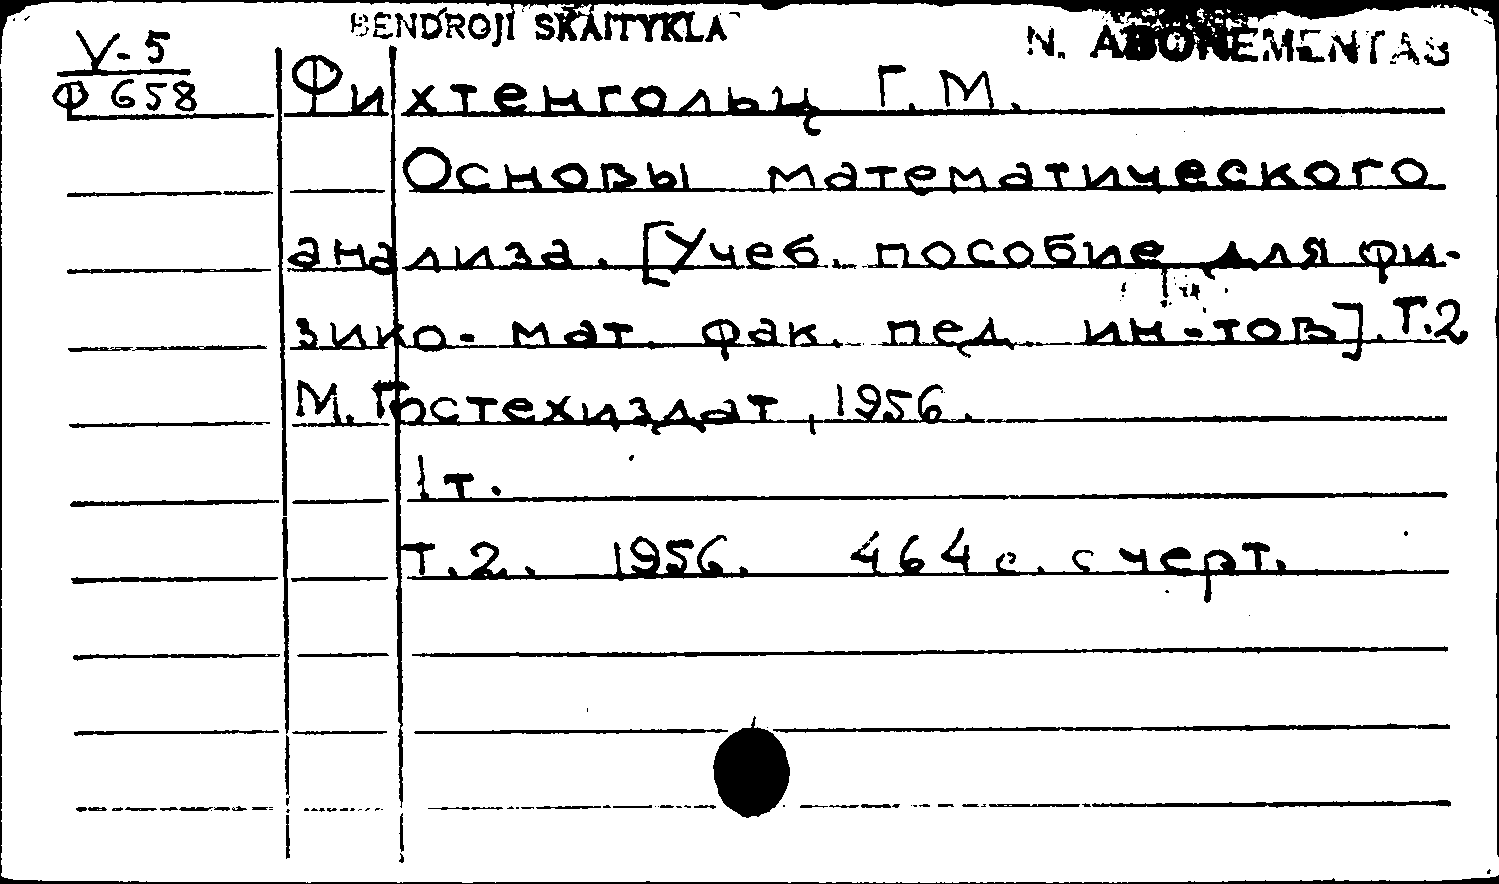 BENDROJI SKAITYKLA
N. ABONEMENTAS
V-5
Ф 658
Фихтенгольц Г. М.
Основы математического
анализа. [Учеб. пособие для фи-
зико-мат. фак. пед. ин-тов]. Т.2
М. Гостехиздат, 1956.
1 т.
Т.2. 1956. 464 с. с черт.